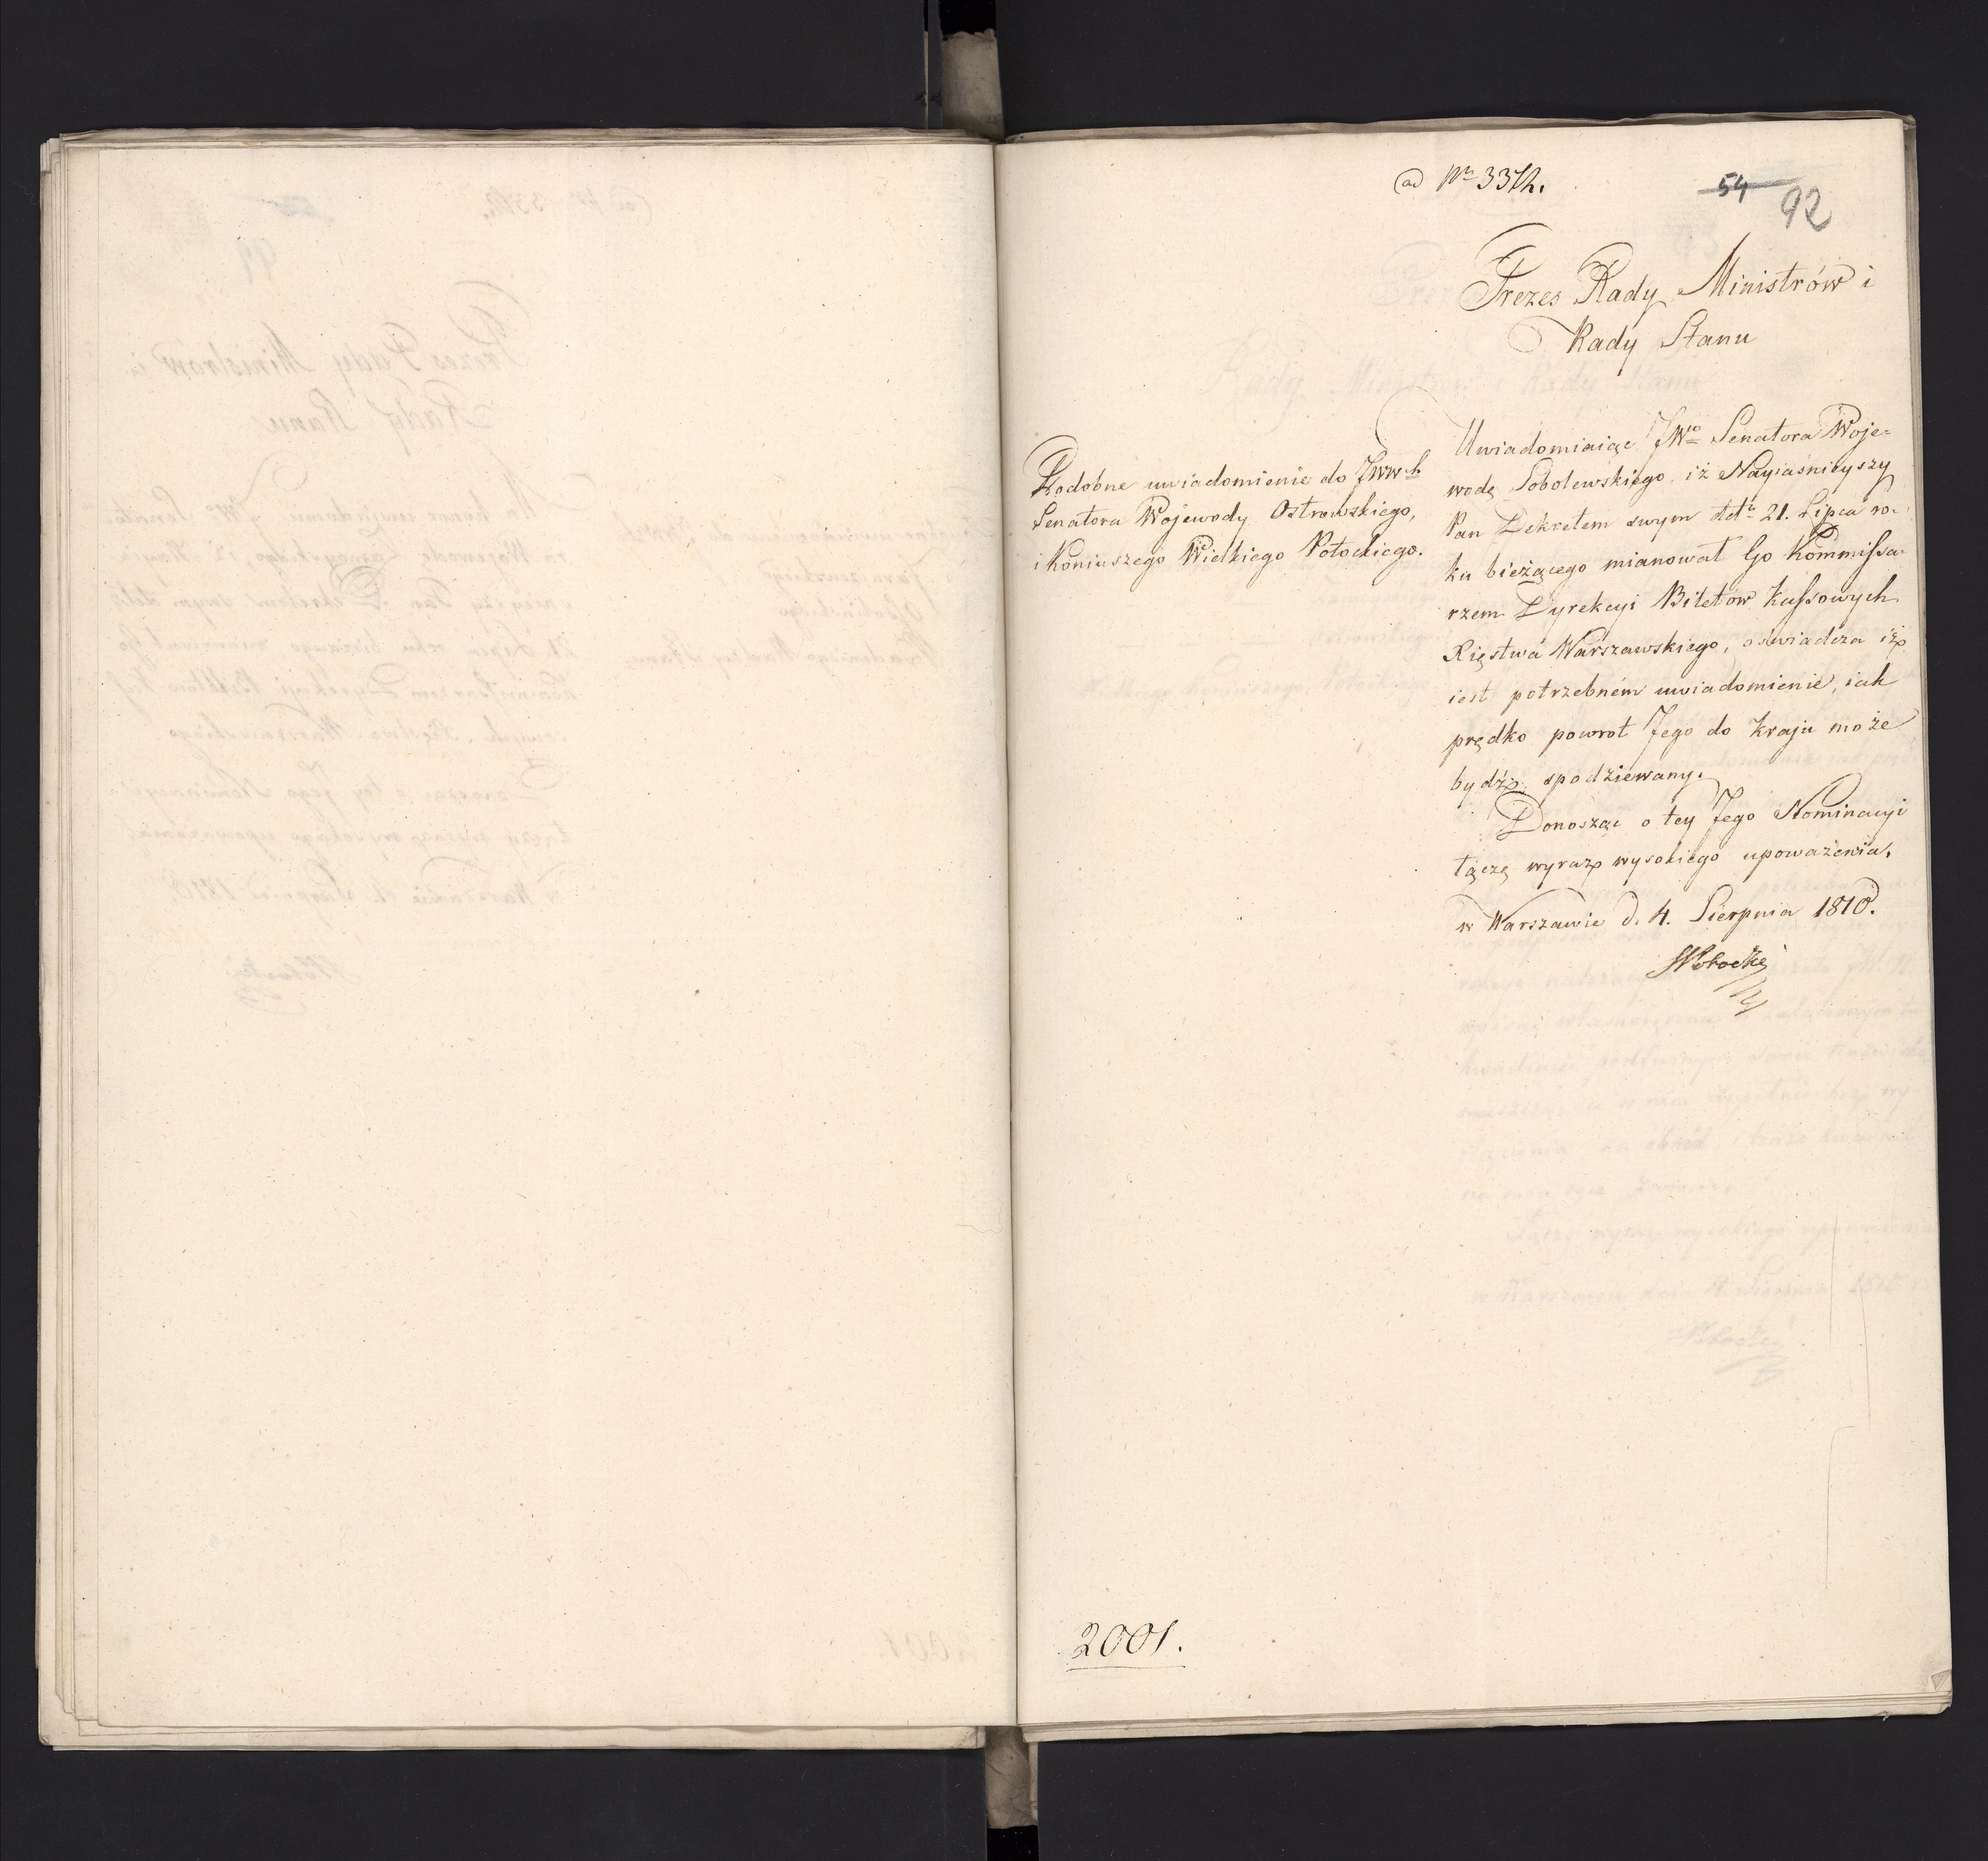 ad Nr 3312.
54
92
Prezes Rady Ministrów i
Rady Stanu
Podobne uwiadomienie do JWWch
Senatora Wojewody Ostrowskiego,
i Koniuszego Wielkiego Potockiego.
Uwiadomiaiąc JWgo Senatora Woje=
wodę Sobolewskiego, iż Nayiaśnieyszy
Pan Dekretem swym ddto 21. Lipca ro=
ku bieżącego mianował Go Kommissa=
rzem Dyrekcyi Biletów Kassowych
Xięstwa Warszawskiego, oświadcza iż
iest potrzebném uwiadomienie, iak
prędko powrot Jego do kraju może
bydź spodziewany.
Donosząc o tey Jego Nominacyi
łączę wyraz wysokiego upoważenia.
w Warszawie d. 4. Sierpnia 1810.
2001.